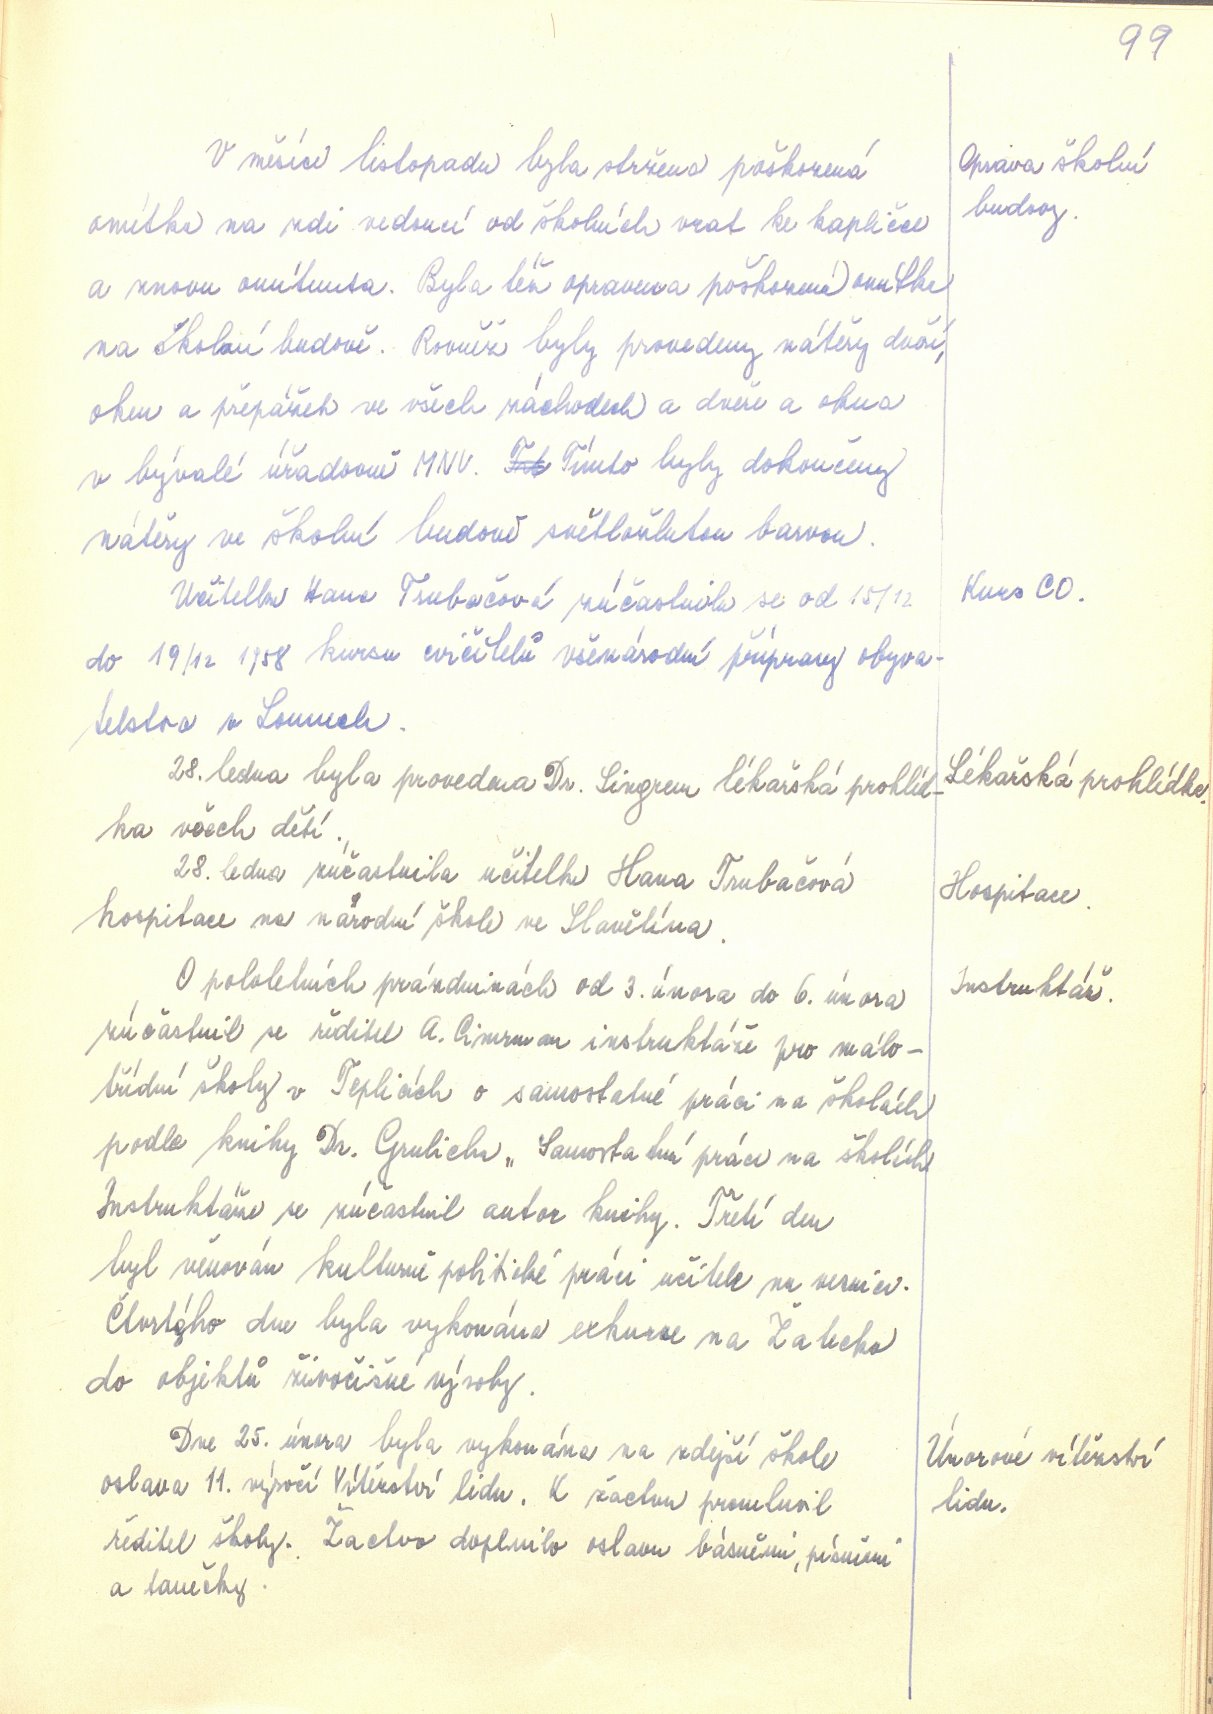 99
V měsíci listopadu byla stržena poškozená
omítka na zdi vedoucí od školních vrat ke kapličce
a znovu omítnuta. Byla též opravena poškozená omítka
na školní budově. Rovněž byly provedeny nátěry dveří,
oken a přepážek ve všech záchodech a dveře a okna
v bývalé úřadovně MNV. Tímto byly dokončeny
nátěry ve školní budově světložlutou barvou.
Oprava školní
budovy.
Učitelka Hana Trubačová zúčastnila se od 15/12
do 19/12 1958 kursu cvičitelů všenárodní přípravy obyva-
telstva v Lounech.
Kurs CO.
28. ledna byla provedena Dr. Singrem lékařská prohlíd-
ka všech dětí.
Lékařská prohlídka.
28. ledna zúčastnila učitelka Hana Trubačová
hospitace na národní škole ve Slavětína.
Hospitace.
O pololetních prázdninách od 3. února do 6. února
zúčastnil se ředitel A. Cimrman instruktáže pro málo-
třídní školy v Teplicích o samostatné práci na školách
podle knihy Dr. Grulicha „Samostatná práce na školách
Instruktáže se zúčastnil autor knihy. Třetí den
byl věnován kulturně politické práci učitele na vesnici.
Čtvrtého dne byla vykonána exkurse na Žatecko
do objektů živočišné výroby.
Instruktáž.
Dne 25. února byla vykonána na zdejší škole
oslava 11. výročí Vítězství lidu. K žactvu promluvil
ředitel školy. Žactvo doplnilo oslavu básněmi, písněmi
a tanečky.
Únorové vítězství
lidu.